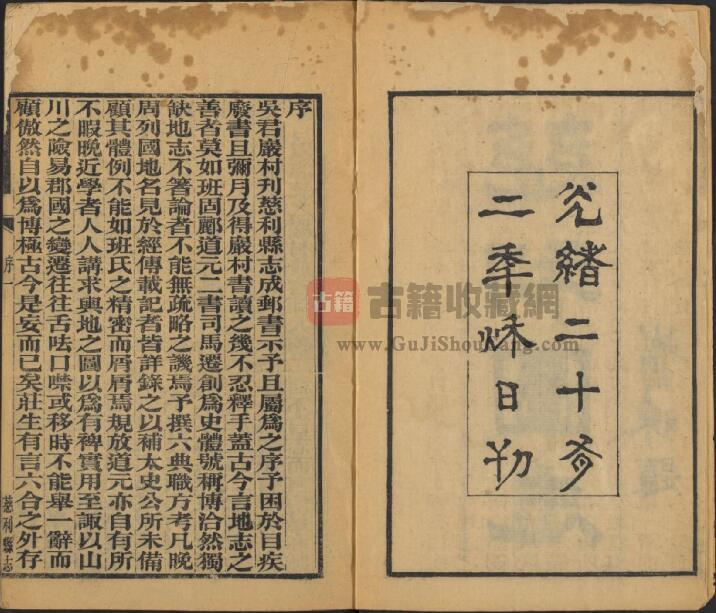 光緒二十有
二年秌日刊
序
吳君嚴村刊慈利縣志成郵書示予且屬爲之序予困於目疾
廢書且彌月及得嚴村書讀之幾不忍釋手蓋古今言地志之
善者莫如班固酈道元二書司馬遷創爲史體號稱博洽然獨
缺地志不箸論者不能無疏略之譏焉予撰六典職方考凡晚
周列國地名見於經傳載記者皆詳錄之以補太史公所未備
顧其體例不能如班氏之精密而屑屑焉規放道元亦自有所
不暇晚近學者人人講求輿地之圖以爲有裨實用至諏以山
川之險易郡國之變遷往往舌呿口噤或移時不能舉一辭而
顧傲然自以爲博極古今是妄而已矣莊生有言六合之外存
序一
慈利縣志
古籍
古籍收藏網
www.GuJiShouCang.com